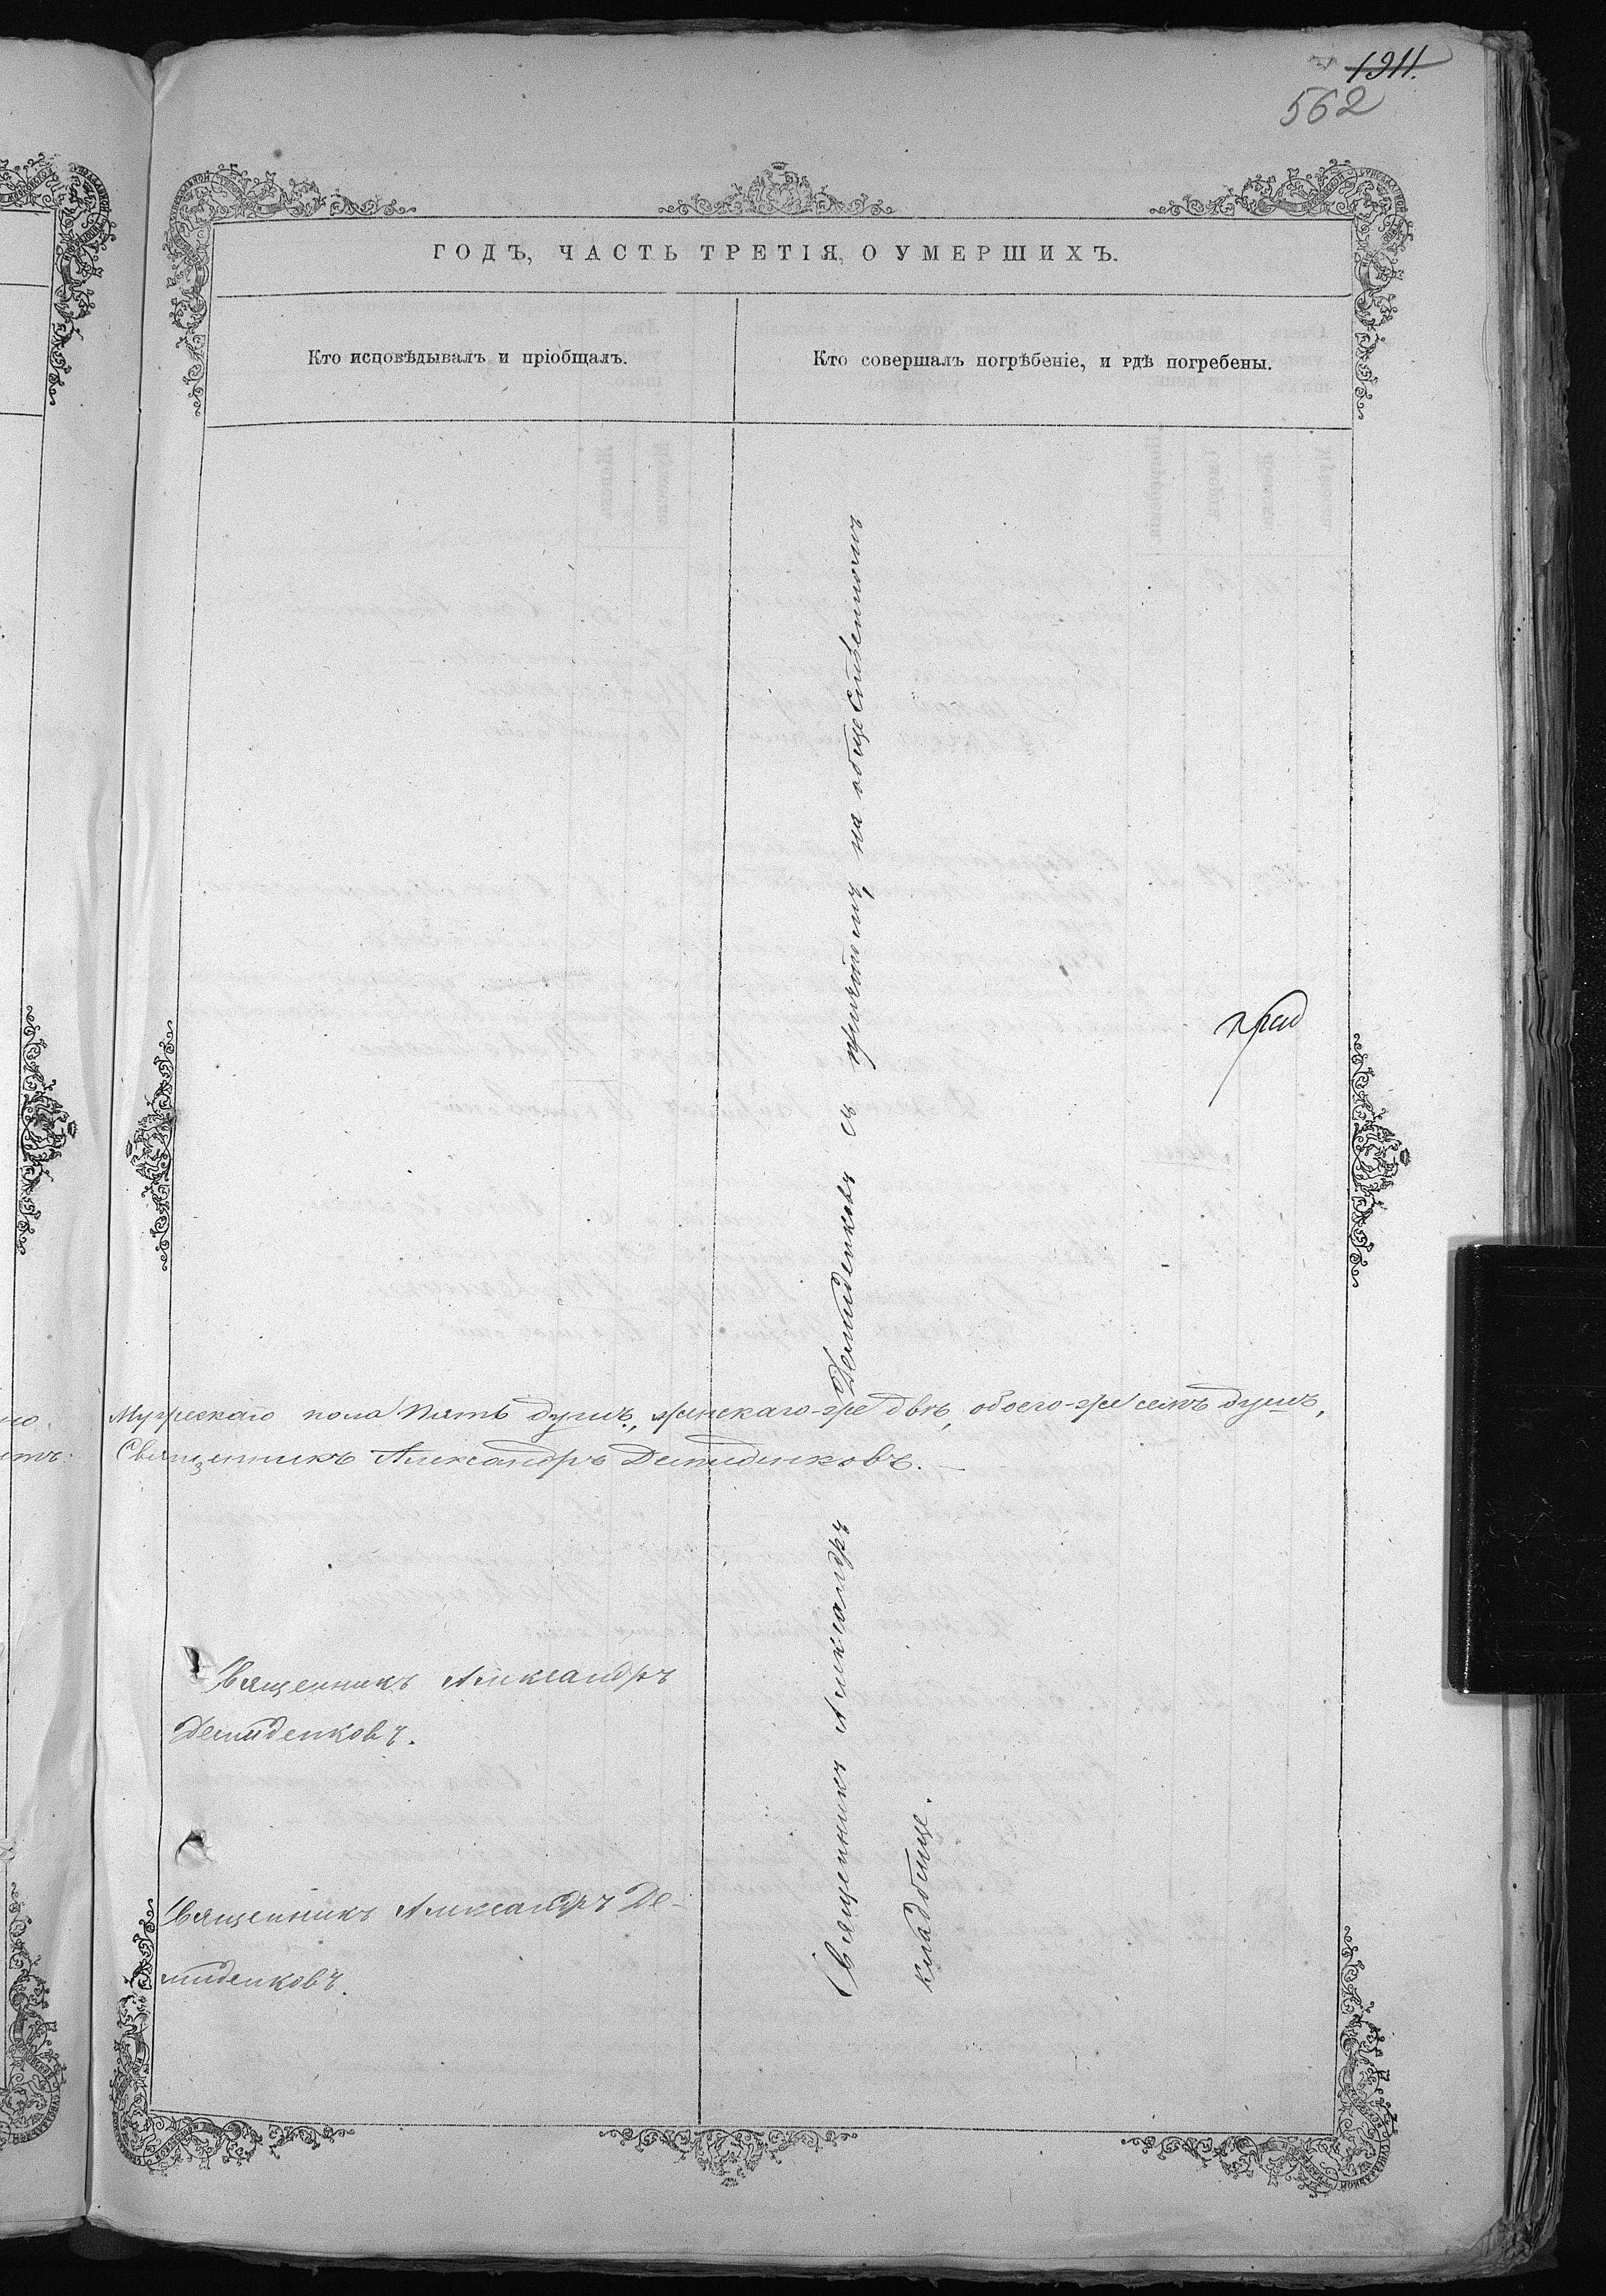 1911.
562
ГОДЪ, ЧАСТЬ ТРЕТІЯ, О УМЕРШИХЪ.
Кто исповѣдывалъ и пріобщалъ.
Кто совершалъ погрѣбеніе, и гдѣ погребены.
Священникъ Александръ Демиденковъ съ причтомъ, на общественномъ
кладбище.
Мужескаго пола пять душъ, женскаго-же двѣ, обоего-же семь душъ,
Священникъ Александръ Демиденковъ.
Священникъ Александръ
Демиденковъ.
Священникъ Александръ Де-
миденковъ.